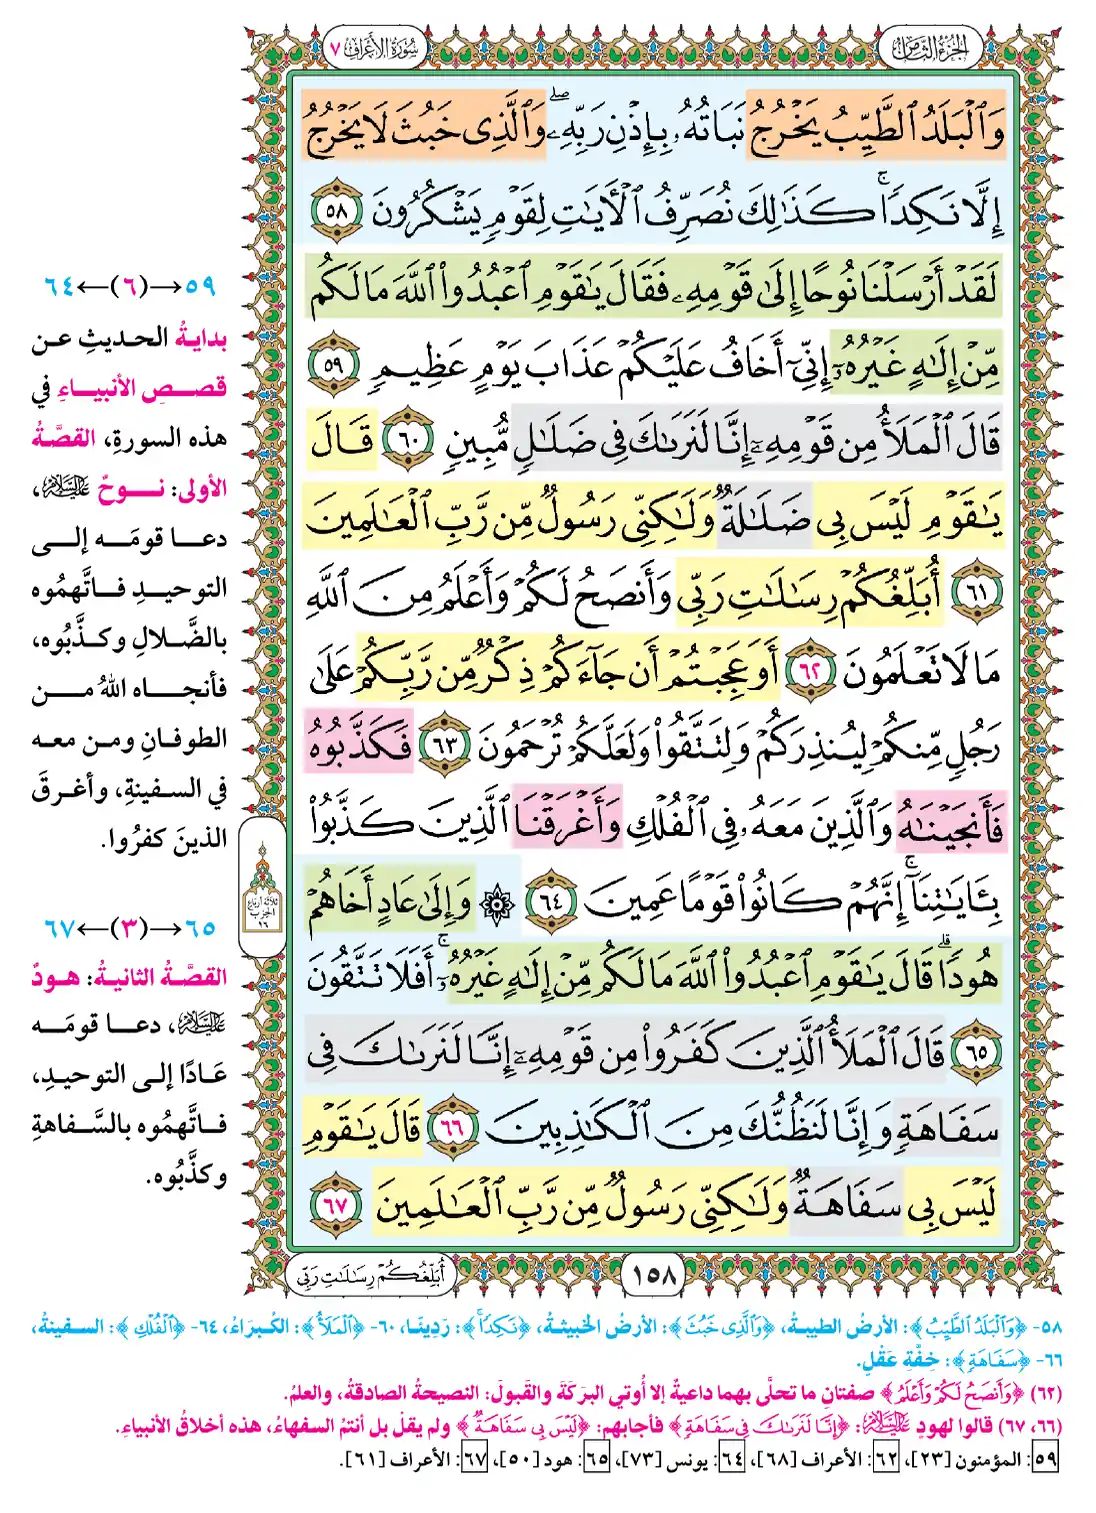 الجزء الثامن
سورة الأعراف ٧
وَٱلْبَلَدُ ٱلطَّيِّبُ يَخْرُجُ نَبَاتُهُۥ بِإِذْنِ رَبِّهِۦۖ وَٱلَّذِى خَبُثَ لَا يَخْرُجُ
إِلَّا نَكِدًاۚ كَذَٰلِكَ نُصَرِّفُ ٱلْأَيَٰتِ لِقَوْمٍ يَشْكُرُونَ ٥٨
لَقَدْ أَرْسَلْنَا نُوحًا إِلَىٰ قَوْمِهِۦ فَقَالَ يَٰقَوْمِ ٱعْبُدُوا۟ ٱللَّهَ مَا لَكُم
مِّنْ إِلَٰهٍ غَيْرُهُۥٓ إِنِّىٓ أَخَافُ عَلَيْكُمْ عَذَابَ يَوْمٍ عَظِيمٍ ٥٩
قَالَ ٱلْمَلَأُ مِن قَوْمِهِۦٓ إِنَّا لَنَرَىٰكَ فِى ضَلَٰلٍ مُّبِينٍ ٦٠ قَالَ
يَٰقَوْمِ لَيْسَ بِى ضَلَٰلَةٌ وَلَٰكِنِّى رَسُولٌ مِّن رَّبِّ ٱلْعَٰلَمِينَ
٦١ أُبَلِّغُكُمْ رِسَٰلَٰتِ رَبِّى وَأَنصَحُ لَكُمْ وَأَعْلَمُ مِنَ ٱللَّهِ
مَا لَا تَعْلَمُونَ ٦٢ أَوَعَجِبْتُمْ أَن جَآءَكُمْ ذِكْرٌ مِّن رَّبِّكُمْ عَلَىٰ
رَجُلٍ مِّنكُمْ لِيُنذِرَكُمْ وَلِتَتَّقُوا۟ وَلَعَلَّكُمْ تُرْحَمُونَ ٦٣ فَكَذَّبُوهُ
فَأَنجَيْنَٰهُ وَٱلَّذِينَ مَعَهُۥ فِى ٱلْفُلْكِ وَأَغْرَقْنَا ٱلَّذِينَ كَذَّبُوا۟
بِـَٔايَٰتِنَآۚ إِنَّهُمْ كَانُوا۟ قَوْمًا عَمِينَ ٦٤ ۞ وَإِلَىٰ عَادٍ أَخَاهُمْ
هُودًاۗ قَالَ يَٰقَوْمِ ٱعْبُدُوا۟ ٱللَّهَ مَا لَكُم مِّنْ إِلَٰهٍ غَيْرُهُۥٓۚ أَفَلَا تَتَّقُونَ
٦٥ قَالَ ٱلْمَلَأُ ٱلَّذِينَ كَفَرُوا۟ مِن قَوْمِهِۦٓ إِنَّا لَنَرَىٰكَ فِى
سَفَاهَةٍ وَإِنَّا لَنَظُنُّكَ مِنَ ٱلْكَٰذِبِينَ ٦٦ قَالَ يَٰقَوْمِ
لَيْسَ بِى سَفَاهَةٌ وَلَٰكِنِّى رَسُولٌ مِّن رَّبِّ ٱلْعَٰلَمِينَ ٦٧
١٥٨
أُبَلِّغُكُمْ رِسَٰلَٰتِ رَبِّى
ثلاثة أرباع
الحزب
١٦
٥٩→(٦)←٦٤
بدايةُ الحديثِ عن
قصصِ الأنبياءِ في
هذه السورةِ، القصَّةُ
الأولى: نوحٌ عليه السلام،
دعا قومَه إلى
التوحيدِ فاتَّهمُوه
بالضَّلالِ وكذَّبُوه،
فأنجاه اللهُ من
الطوفانِ ومن معه
في السفينةِ، وأغرقَ
الذينَ كفرُوا.
٦٥→(٣)←٦٧
القصَّةُ الثانيةُ: هودٌ
عليه السلام، دعا قومَه
عَادًا إلى التوحيدِ،
فاتَّهمُوه بالسَّفاهةِ
وكذَّبُوه.
٥٨- ﴿وَٱلْبَلَدُ ٱلطَّيِّبُ﴾: الأرضُ الطيبةُ، ﴿وَٱلَّذِى خَبُثَ﴾: الأرضُ الخبيثةُ، ﴿نَكِدًاۚ﴾: رَدِيئًا، ٦٠- ﴿ٱلْمَلَأُ﴾: الكُبَرَاءُ، ٦٤- ﴿ٱلْفُلْكِ﴾: السفينةُ،
٦٦- ﴿سَفَاهَةٍ﴾: خِفَّةِ عَقْلٍ.
(٦٢) ﴿وَأَنصَحُ لَكُمْ وَأَعْلَمُ﴾ صفتانِ ما تحلَّى بهما داعيةٌ إلا أُوتي البرَكَةَ والقبولَ: النصيحةُ الصادقةُ، والعلمُ.
(٦٦، ٦٧) قالوا لهودٍ عليه السلام: ﴿إِنَّا لَنَرَىٰكَ فِى سَفَاهَةٍ﴾ فأجابهم: ﴿لَيْسَ بِى سَفَاهَةٌ﴾ ولم يقلْ بل أنتمُ السفهاءُ، هذه أخلاقُ الأنبياءِ.
٥٩: المؤمنون [٢٣]، ٦٢: الأعراف [٦٨]، ٦٤: يونس [٧٣]، ٦٥: هود [٥٠]، ٦٧: الأعراف [٦١].